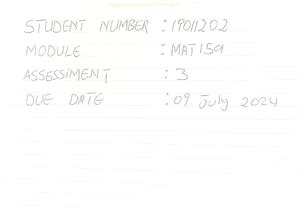 STUDENT NUMBER : 19011202
MODULE : MAT159
ASSESSIMENT : 3
DUE DATE : 09 July 2024